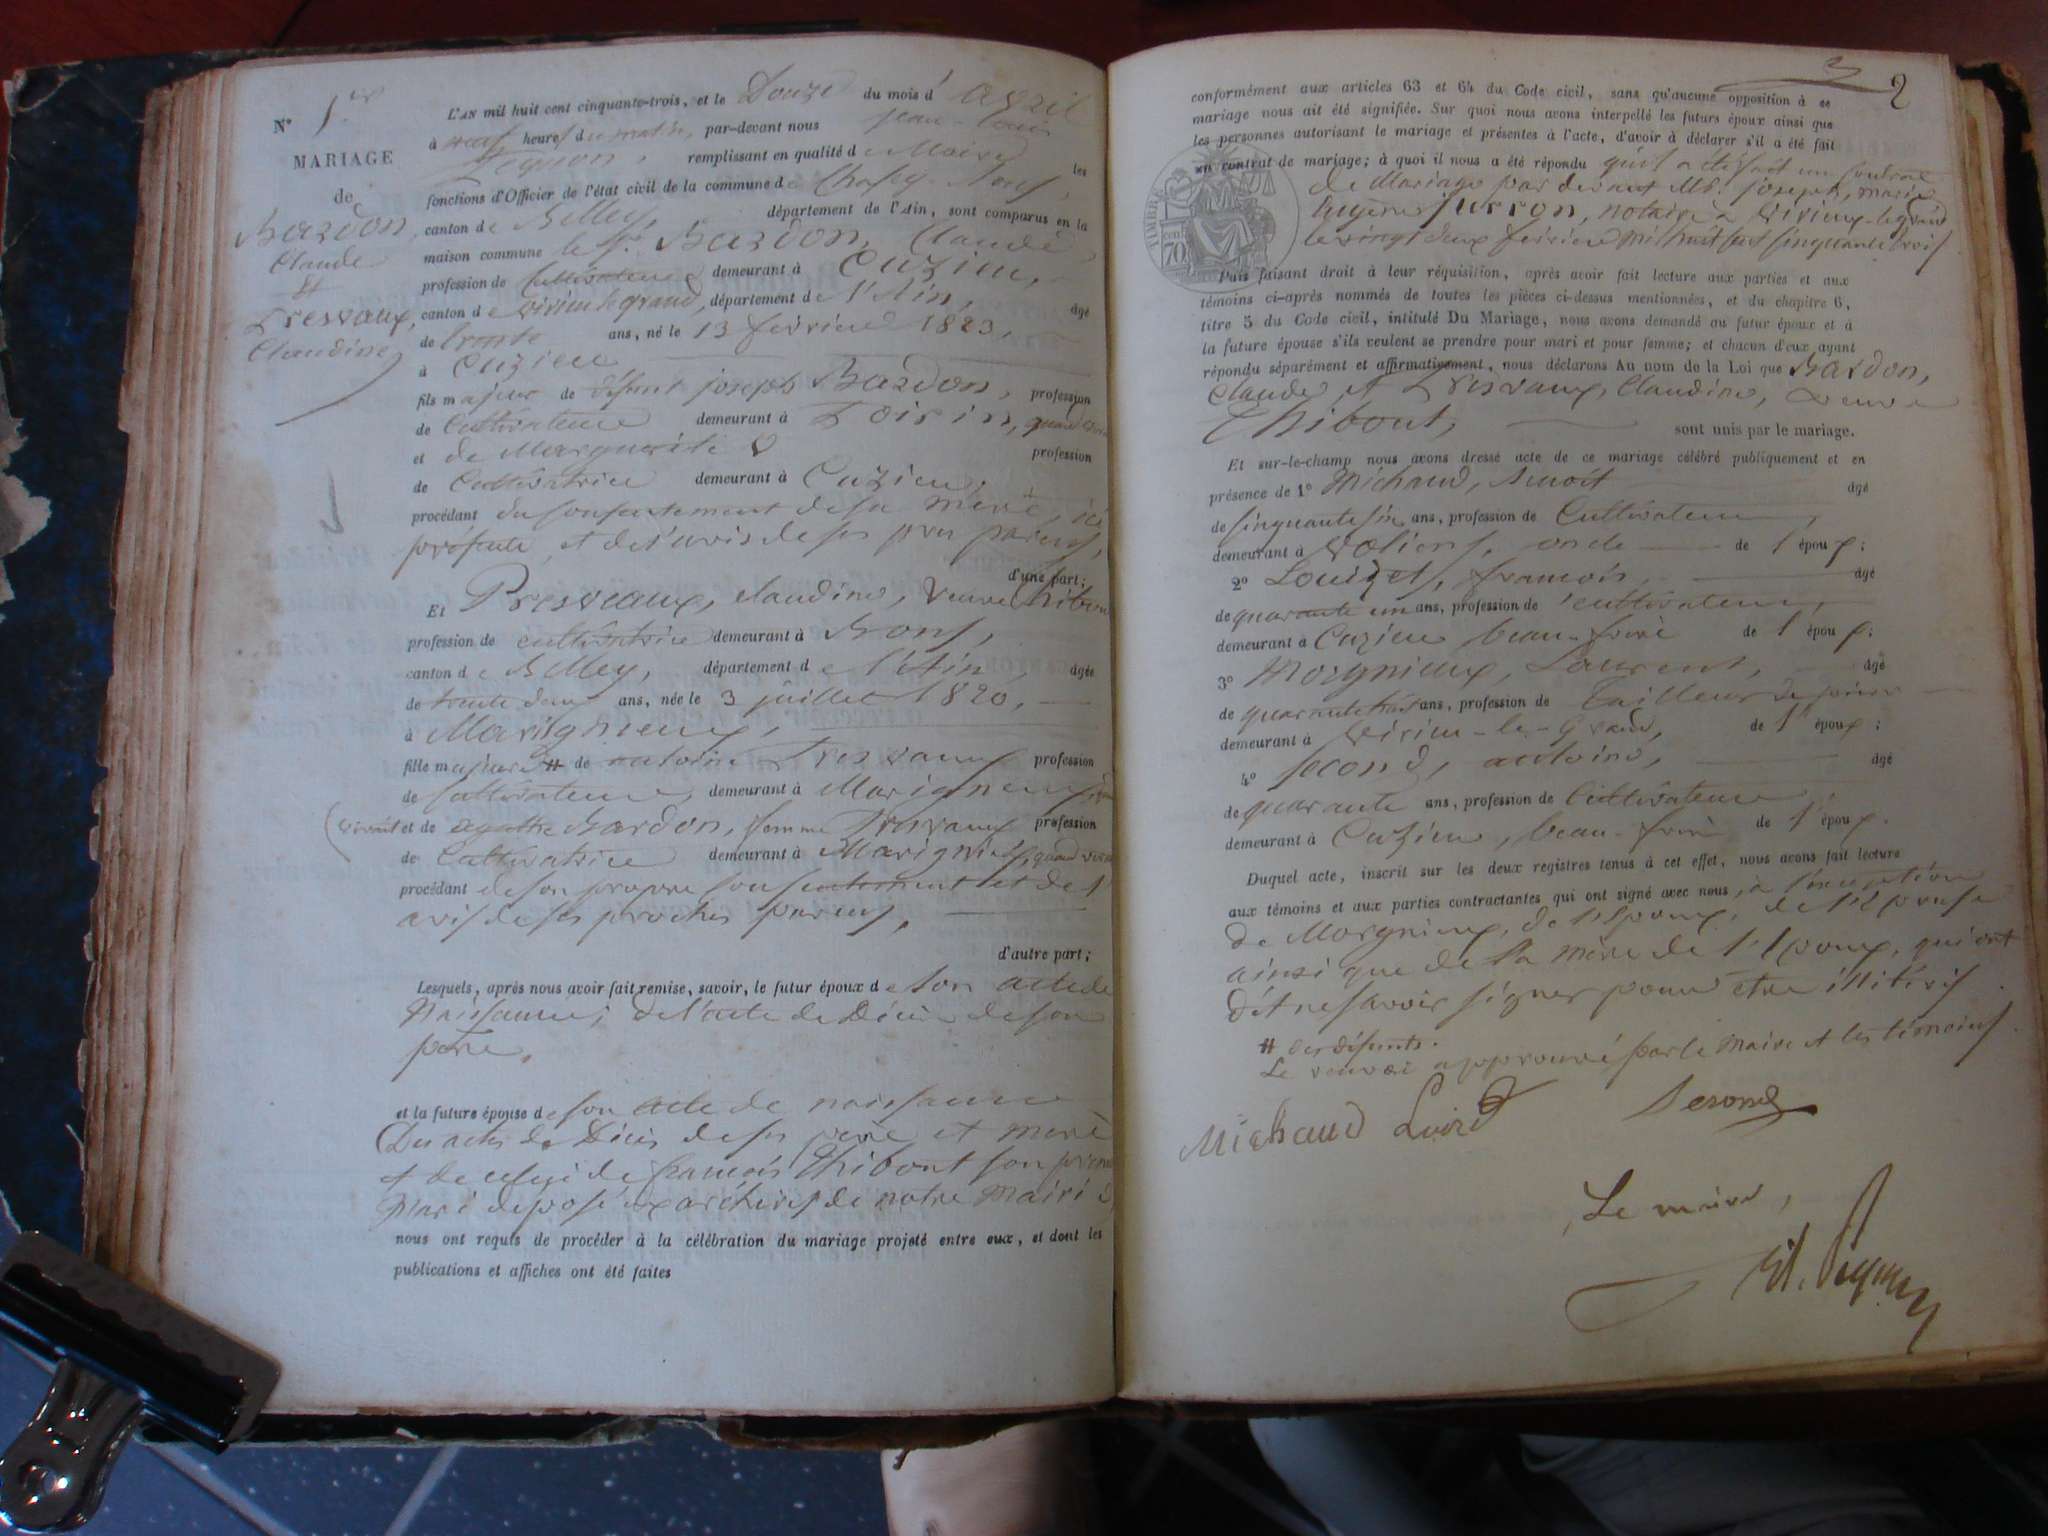 N° 1er
MARIAGE
de
Bardon,
Claude
et
Presvaux,
Claudine
L'AN mil huit cent cinquante-trois, et le Douze du mois d' avril
à neuf heures du matin, par-devant nous jean-louis
remplissant en qualité de Maire les
fonctions d'Officier de l'état civil de la commune de Chazey-Bons,
canton de Belley, département de l'Ain, sont comparus en la
maison commune le Sr. Bardon, Claude,
profession de Cultivateur demeurant à Cuzieu,
canton de virieu le grand, département de l'Ain, âgé
de trente ans, né le 13 février 1823,
à Cuzieu
fils majeur de défunt joseph Bardon, profession
de Cultivateur demeurant à quand
et de Marguerite profession
de Cultivatrice demeurant à Cuzieu,
procédant du consentement de sa mère, ici
présente, et de l'avis de ses pres parens,
d'une part;
Et Presveaux, claudine, veuve Thibout
profession de cultivatrice demeurant à Bons,
canton de Belley, département de l'Ain, âgée
de trente deux ans, née le 3 juillet 1820,
à Marignieux,
fille majeure # de antoine Presvaux profession
de Cultivateur, demeurant à Marignieux,
vivait et de Bardon, femme Presvaux profession
de Cultivatrice demeurant à Marignieux, quand vivait
procédant de son propre consentement et de l'
avis de ses proches parens,
d'autre part;
Lesquels, après nous avoir fait remise, savoir, le futur époux de son acte de
Naissance, de l'acte de Décès de son
père,
et la future épouse de son acte de naissance
Des actes de Décès de ses père et mère
et de celui de françois Thibout son premier
mari déposé aux archives de notre Mairie
nous ont requis de procéder à la célébration du mariage projeté entre eux, et dont les
publications et affiches ont été faites
2
conformément aux articles 63 et 64 du Code civil, sans qu'aucune opposition à ce
mariage nous ait été signifiée. Sur quoi nous avons interpellé les futurs époux ainsi que
les personnes autorisant le mariage et présentes à l'acte, d'avoir à déclarer s'il a été fait
un contrat de mariage; à quoi il nous a été répondu qu'il a été fait un contrat
de Mariage par devant Me. joseph, marie
Eugène notaire à virieu-le-grand
le vingt deux février mil huit cent cinquante trois
TIMBRE
70 CEN
Puis faisant droit à leur réquisition, après avoir fait lecture aux parties et aux
témoins ci-après nommés de toutes les pièces ci-dessus mentionnées, et du chapitre 6,
titre 5 du Code civil, intitulé Du Mariage, nous avons demandé au futur époux et à
la future épouse s'ils veulent se prendre pour mari et pour femme; et chacun d'eux ayant
répondu séparément et affirmativement, nous déclarons Au nom de la Loi que Bardon,
Claude, et Presvaux, Claudine, veuve
Thibout, sont unis par le mariage.
Et sur-le-champ nous avons dressé acte de ce mariage célébré publiquement et en
présence de 1° Michaud, Benoît âgé
de cinquante six ans, profession de Cultivateur,
demeurant à oncle de l'époux;
2° Louizet, françois, âgé
de quarante un ans, profession de cultivateur,
demeurant à Cuzieu beau-frère de l'époux;
3° Morgnieux, Laurent, âgé
de quarante trois ans, profession de Tailleur de pierre
demeurant à virieu-le-Grand, de l'époux;
4° Second, antoine, âgé
de quarante ans, profession de Cultivateur
demeurant à Cuzieu, beau-frère de l'époux.
Duquel acte, inscrit sur les deux registres tenus à cet effet, nous avons fait lecture
aux témoins et aux parties contractantes qui ont signé avec nous, à l'exception
de Morgnieux, de l'Epoux, de l'Epouse
ainsi que de la mère de l'Epoux, qui ont
dit ne savoir signer pour être illitérés.
# des défunts.
Le renvoi approuvé par le Maire et les témoins.
Michaud Second
Le maire,